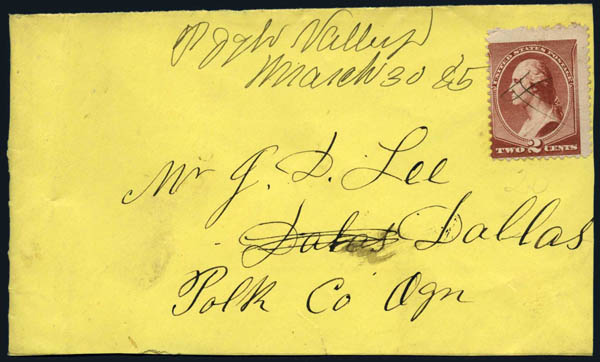 Valley
March 30 85
UNITED STATES POSTAGE
TWO 2 CENTS
Mr J. D. Lee
Dalas Dallas
Polk Co Ogn